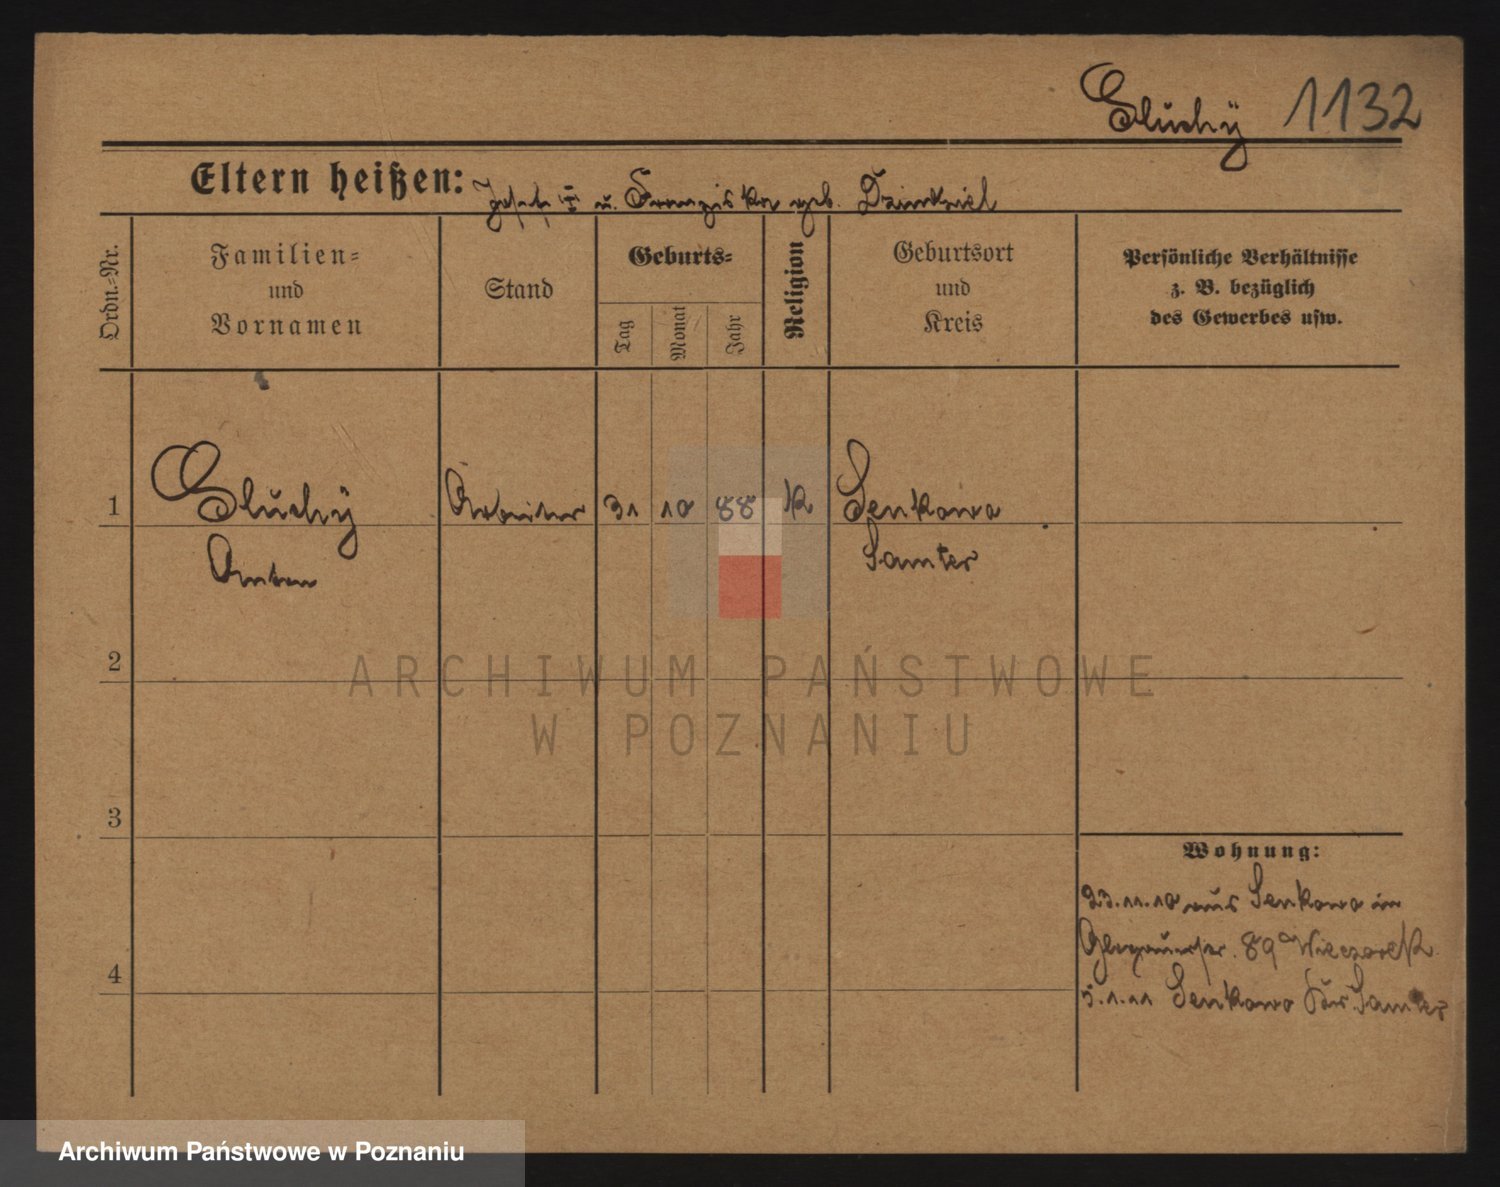 Sluchÿ 1132
Eltern heißen: Josef † u. Franziska geb.
Ordn.-Nr.
Familien-
und
Vornamen
Stand
Geburts-
Tag
Monat
Jahr
Religion
Geburtsort
und
Kreis
Persönliche Verhältnisse
z. B. bezüglich
des Gewerbes usw.
1 Sluchÿ Arbeiter 31 10 88 K Senkowo
Anton Samter
2
ARCHIWUM PAŃSTWOWE
W POZNANIU
3
Wohnung:
23.11.10 aus Senkowo in
Glogauerstr. 89 Wieczorek
4
5.1.11 Senkowo Kr. Samter
Archiwum Państwowe w Poznaniu